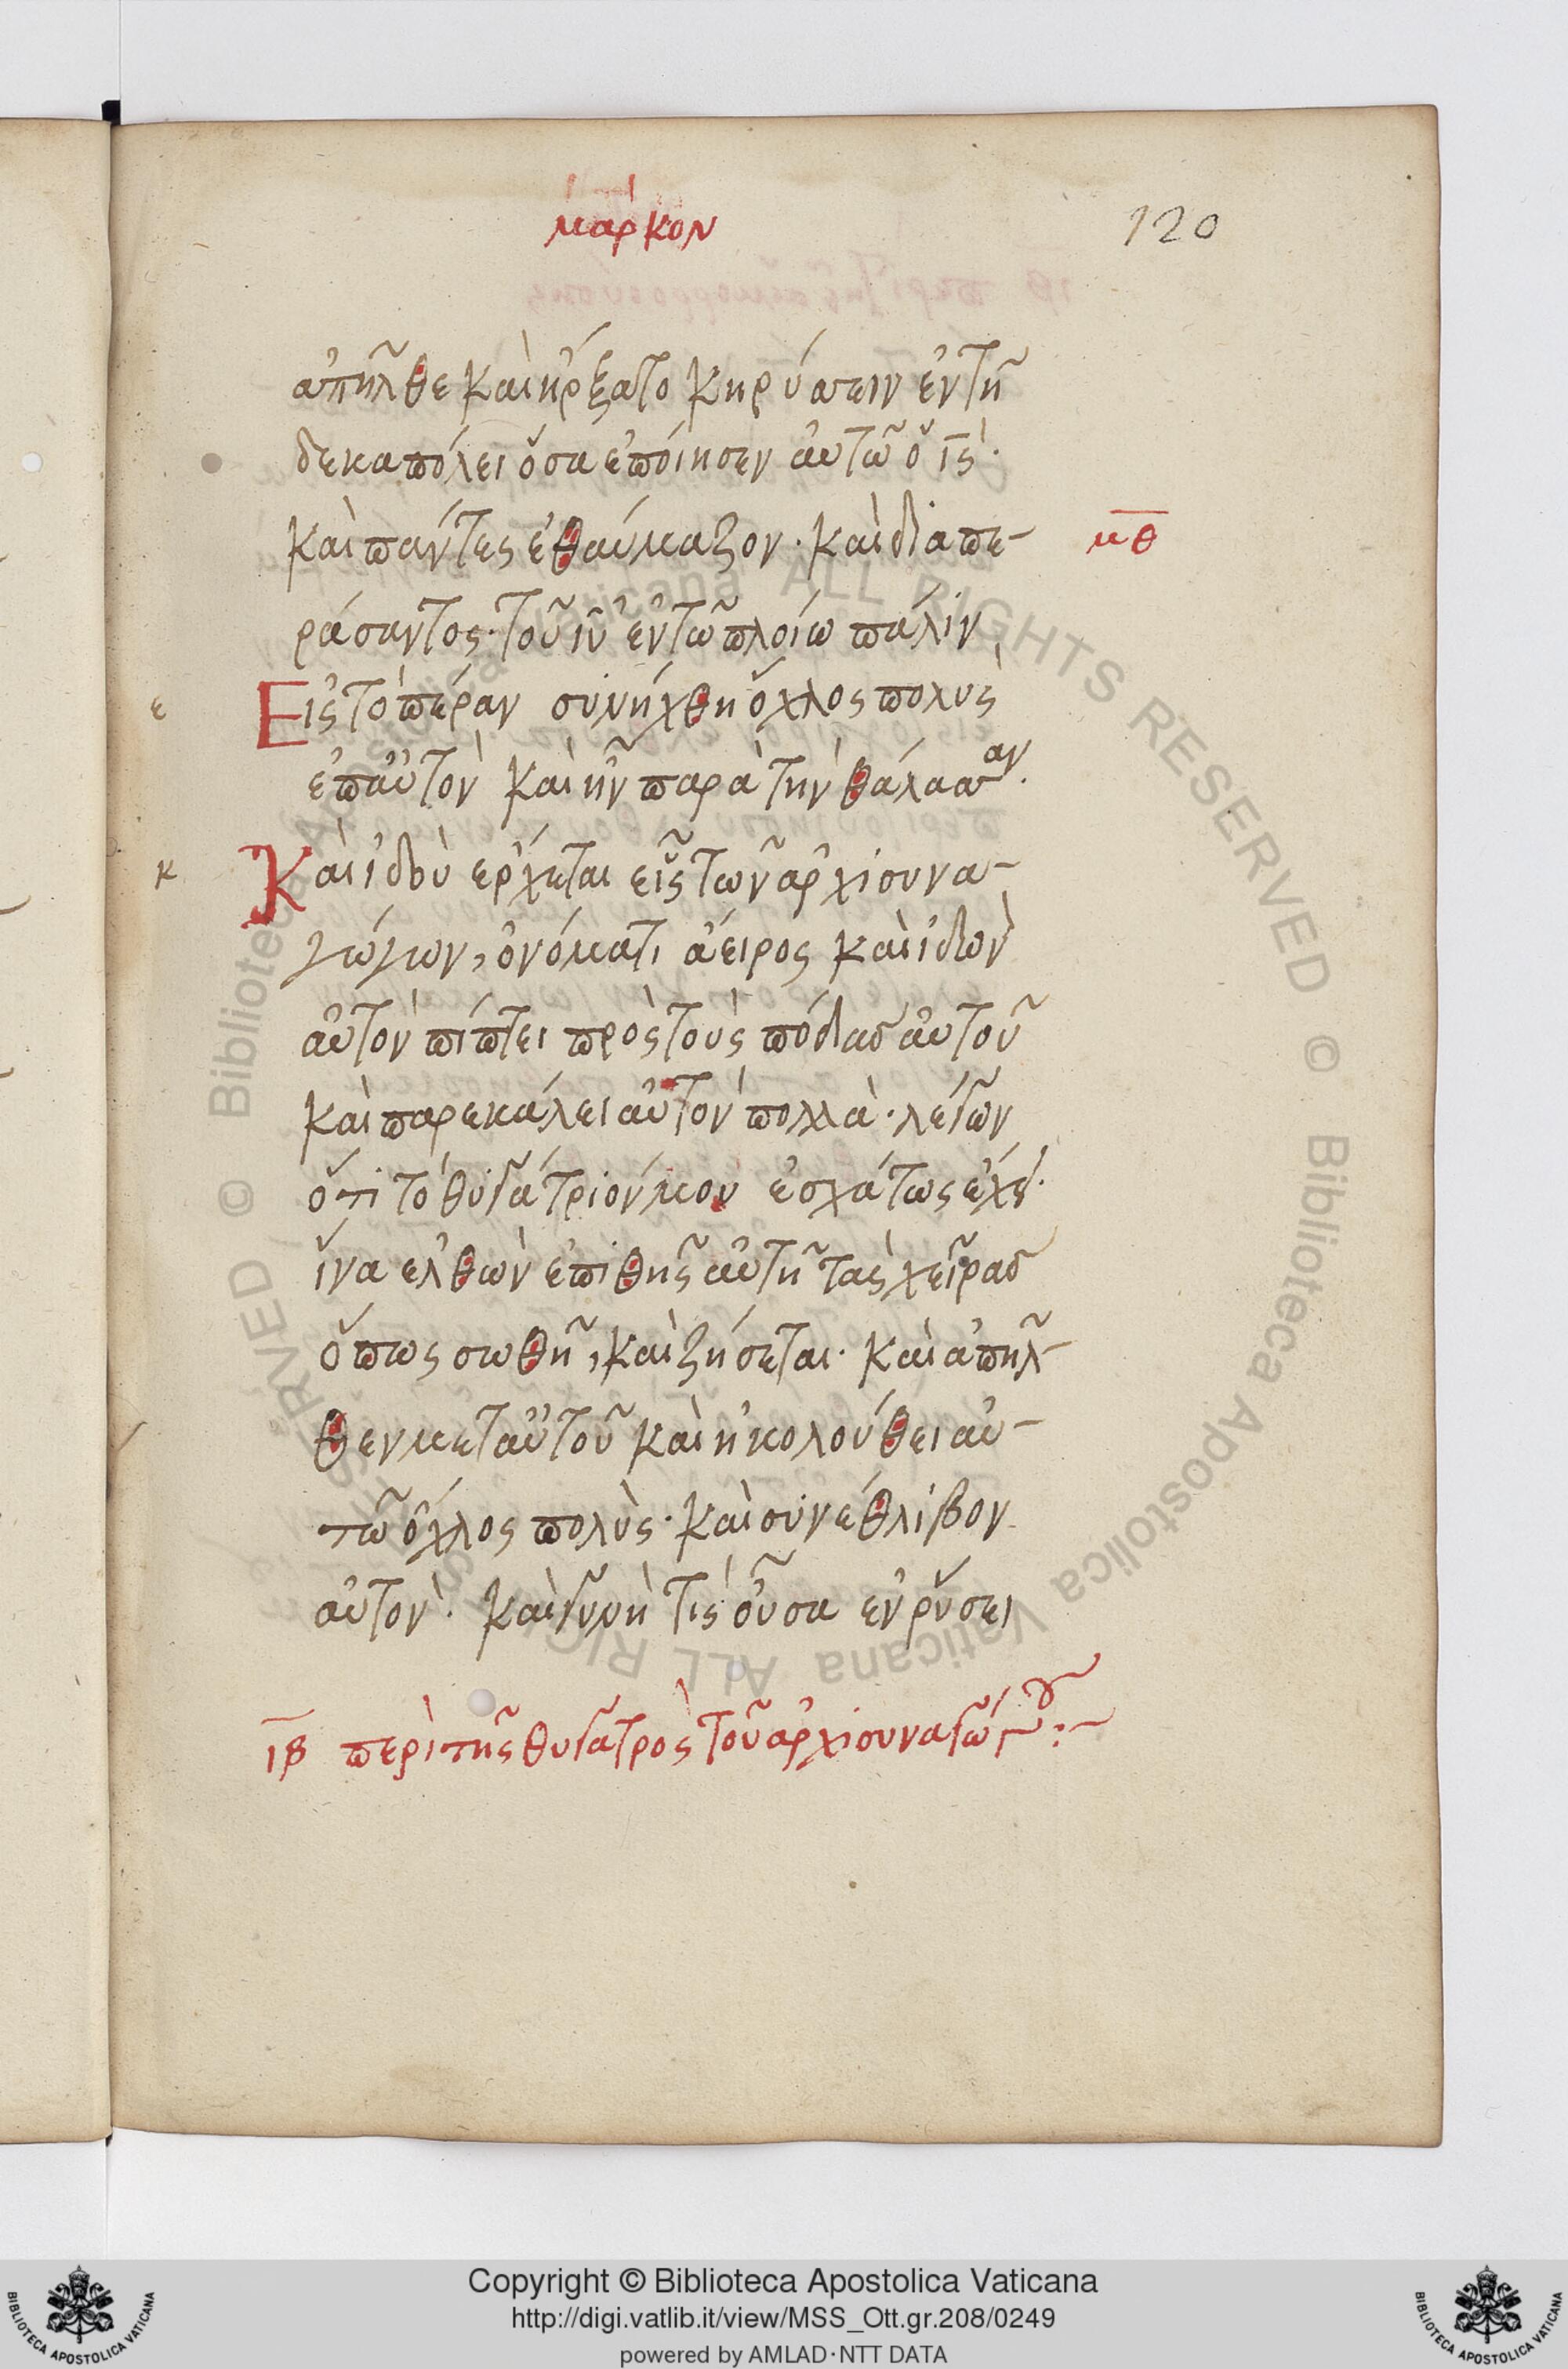 μάρκον
120
ἀπῆλθε καὶ ἤρξατο κηρύσσειν ἐν τῆ
δεκαπόλει ὅσα ἐποίησεν αὐτῶ ὁ ις̅·
καὶ πάντες ἐθαύμαζον· καὶ διαπε- μθ̅
ράσαντος· τοῦ ιυ̅ ἐν τῶ πλοίω πάλιν
ε Εἰς τὸ πέραν συνήχθη ὄχλος πολὺς
ἐπ αὐτὸν καὶ ἦν παρὰ τὴν θάλασσαν.
κ Καὶ ἰδοὺ ἔρχεται εἷς τῶν ἀρχισυνα-
γώγων, ὀνόματι ἀειρος καὶ ἰδὼν
αὐτὸν πίπτει πρὸς τοὺς πόδας αὐτοῦ
καὶ παρεκάλει αὐτὸν πολλὰ· λέγων
ὅτι τὸ θυγάτριόν μου ἐσχάτως ἔχει·
ἵνα ἐλθὼν ἐπιθῆς αὐτῆ τὰς χεῖρας
ὅπως σωθῆ, καὶ ζήσεται· καὶ ἀπῆλ-
θεν μετ αὐτοῦ καὶ ἠκολούθει αὐ-
τῶ ὄχλος πολὺς· καὶ συνέθλιβον
αὐτὸν· καὶ γυνὴ τὶς οὖσα ἐν ρύσει
ιβ̅ περὶ τῆς θυγατρὸς τοῦ ἀρχισυναγώγου:~
Copyright © Biblioteca Apostolica Vaticana
http://digi.vatlib.it/view/MSS_Ott.gr.208/0249
powered by AMLAD·NTT DATA
BIBLIOTECA APOSTOLICA VATICANA
BIBLIOTECA APOSTOLICA VATICANA
© Biblioteca Apostolica Vaticana ALL RIGHTS RESERVED © Biblioteca Apostolica Vaticana ALL RIGHTS RESERVED